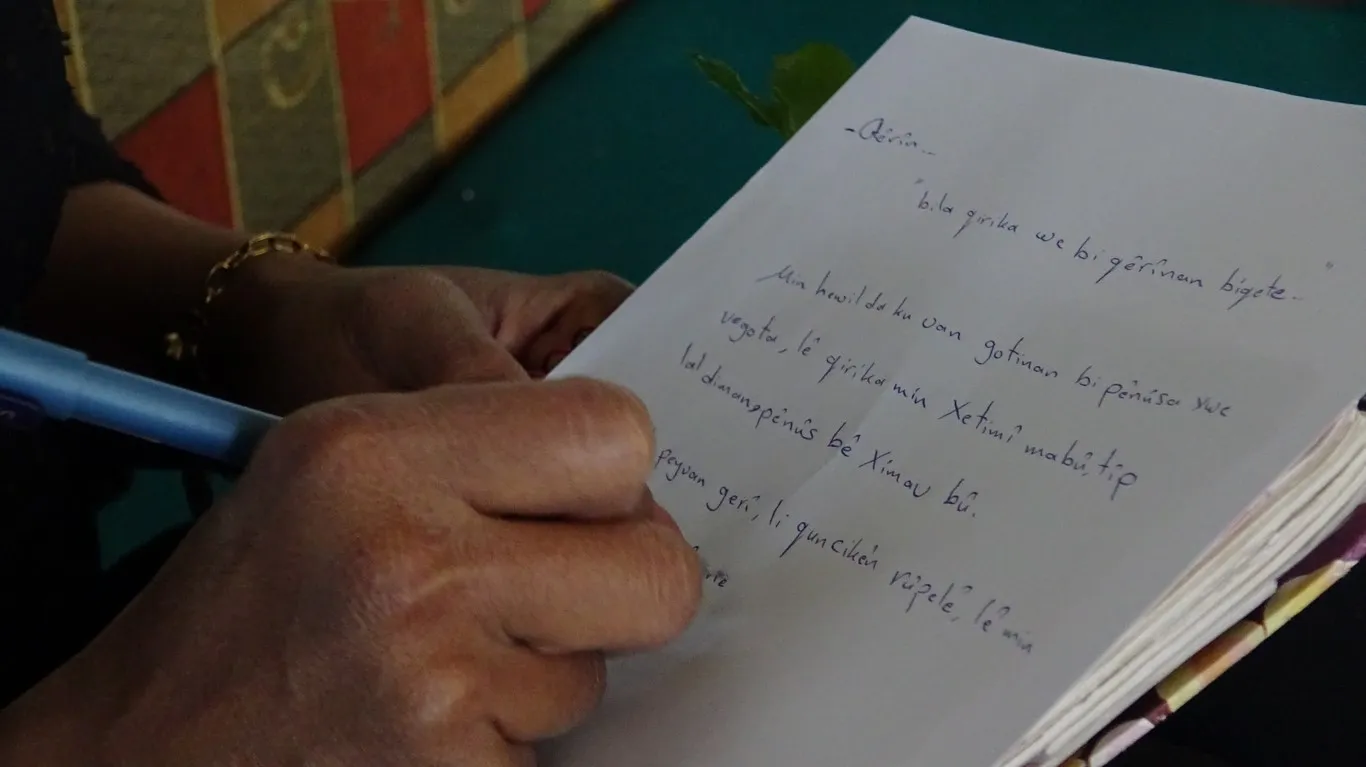 -Qêrîn...
"bila qirika we bi qêrînan biqete.. "
Min hewil da ku van gotinan bi pênûsa xwe
vegota, lê qirika min Xetimî mabû, tîp
lal diman, pênûs bê Ximav bû.
peyvan gerî, li quncikên rûpelê, lê min